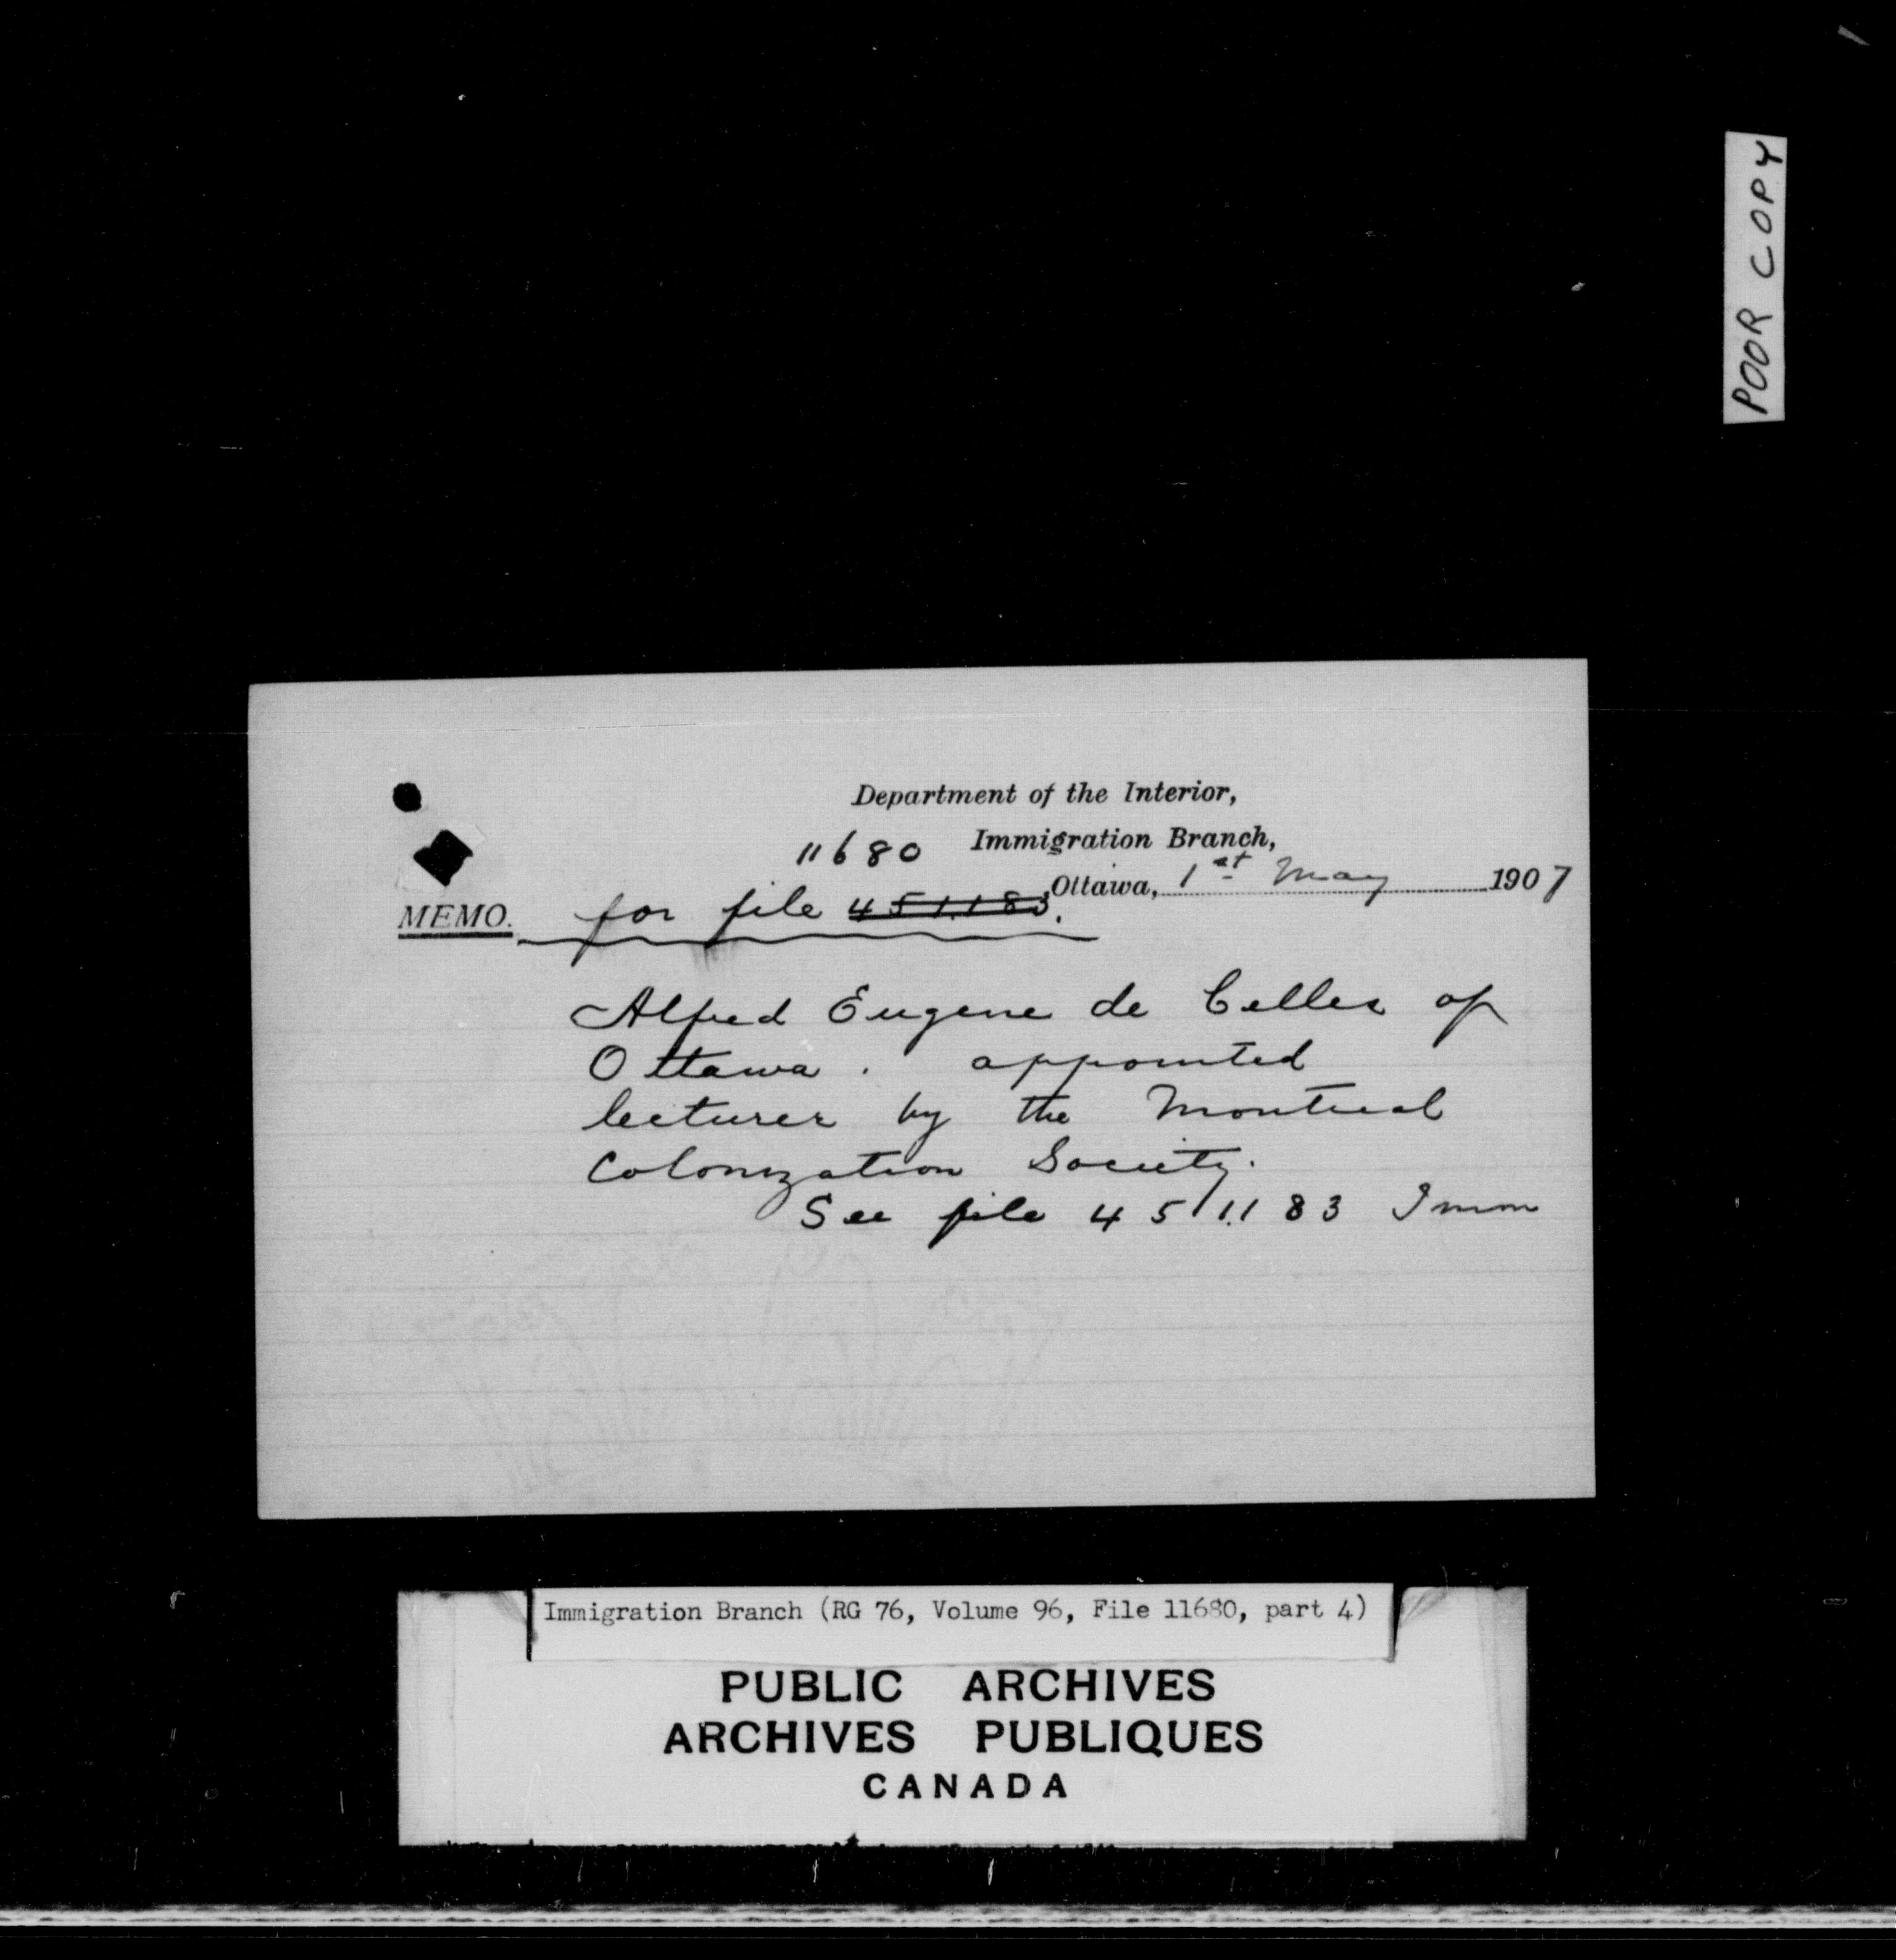 POOR COPY
Department of the Interior,
11680 Immigration Branch,
Ottawa, 1st May 1907
MEMO. for file 451183.
Alfred Eugene de Celles of
Ottawa. appointed
lecturer by the Montreal
Colonization Society.
See file 451183 Imm
Immigration Branch (RG 76, Volume 96, File 11680, part 4)
PUBLIC ARCHIVES
ARCHIVES PUBLIQUES
CANADA